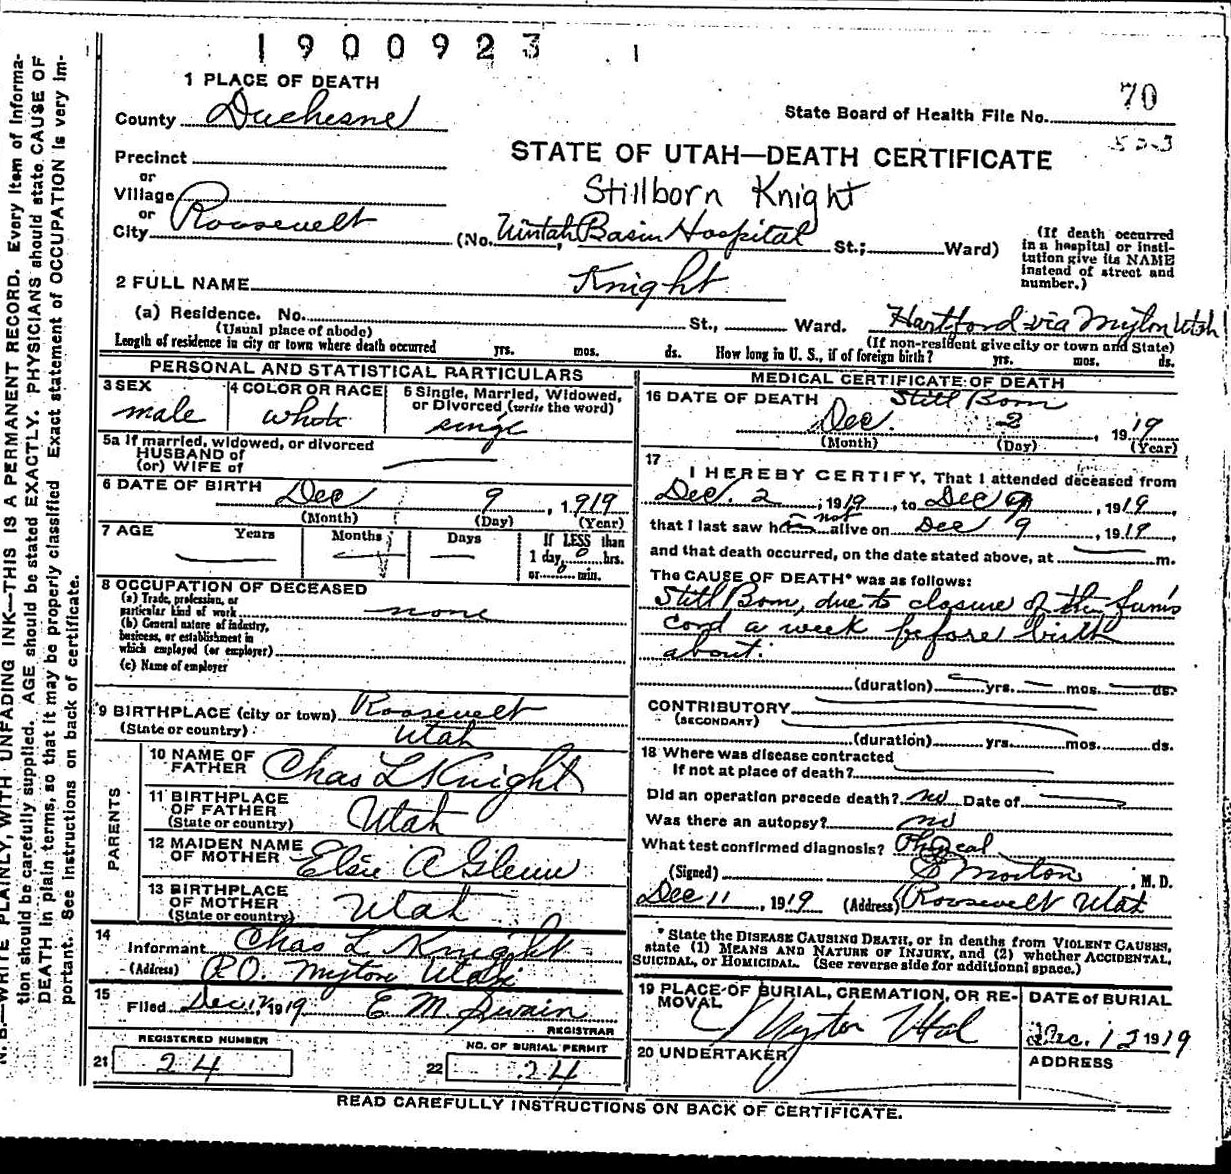 1900923
1 PLACE OF DEATH
County Duchesne
State Board of Health File No. 70
523
Precinct
or
Village
or
City Roosevelt
STATE OF UTAH—DEATH CERTIFICATE
Stillborn Knight
(No. Uintah Basin Hospital St.; Ward)
(If death occurred in a hospital or institution give its NAME instead of street and number.)
2 FULL NAME Knight
(a) Residence. No. St., Ward. Hartford via Myton Utah
(Usual place of abode) (If non-resident give city or town and State)
Length of residence in city or town where death occurred yrs. mos. ds. How long in U. S., if of foreign birth? yrs. mos. ds.
PERSONAL AND STATISTICAL PARTICULARS
3 SEX 4 COLOR OR RACE 5 Single, Married, Widowed, or Divorced (write the word)
male white single
5a If married, widowed, or divorced
HUSBAND of
(or) WIFE of
6 DATE OF BIRTH Dec 9, 1919
(Month) (Day) (Year)
7 AGE Years Months Days If LESS than
1 day, 0 hrs.
or 0 min.
8 OCCUPATION OF DECEASED
(a) Trade, profession, or
particular kind of work none
(b) General nature of industry,
business, or establishment in
which employed (or employer)
(c) Name of employer
9 BIRTHPLACE (city or town) Roosevelt
(State or country) Utah
PARENTS
10 NAME OF FATHER Chas L Knight
11 BIRTHPLACE OF FATHER (State or country) Utah
12 MAIDEN NAME OF MOTHER Elsie A
13 BIRTHPLACE OF MOTHER (State or country) Utah
14
Informant Chas L Knight
(Address) P.O. Myton Utah
15
Filed Dec 12, 1919 E M Swain
REGISTRAR
REGISTERED NUMBER NO. OF BURIAL PERMIT
21 24 22 24
MEDICAL CERTIFICATE OF DEATH
16 DATE OF DEATH Still Born
Dec. 2, 1919
(Month) (Day) (Year)
17
I HEREBY CERTIFY, That I attended deceased from
Dec. 2, 1919, to Dec 9, 1919
that I last saw h not alive on Dec 9, 1919,
and that death occurred, on the date stated above, at m.
The CAUSE OF DEATH* was as follows:
Still Born, due to closure of the funis
cord a week before birth
about.
(duration) yrs. mos. ds.
CONTRIBUTORY
(SECONDARY)
(duration) yrs. mos. ds.
18 Where was disease contracted
If not at place of death?
Did an operation precede death? no Date of
Was there an autopsy? no
What test confirmed diagnosis? Physical
(Signed) E Morton, M. D.
Dec 11, 1919 (Address) Roosevelt Utah
* State the DISEASE CAUSING DEATH, or in deaths from VIOLENT CAUSES,
state (1) MEANS AND NATURE OF INJURY, and (2) whether ACCIDENTAL,
SUICIDAL, or HOMICIDAL. (See reverse side for additional space.)
19 PLACE OF BURIAL, CREMATION, OR REMOVAL DATE of BURIAL
Myton Utah Dec. 12 1919
20 UNDERTAKER ADDRESS
READ CAREFULLY INSTRUCTIONS ON BACK OF CERTIFICATE.
N. B.—WRITE PLAINLY, WITH UNFADING INK—THIS IS A PERMANENT RECORD. Every item of information should be carefully supplied. AGE should be stated EXACTLY. PHYSICIANS should state CAUSE OF DEATH in plain terms, so that it may be properly classified. Exact statement of OCCUPATION is very important. See instructions on back of certificate.